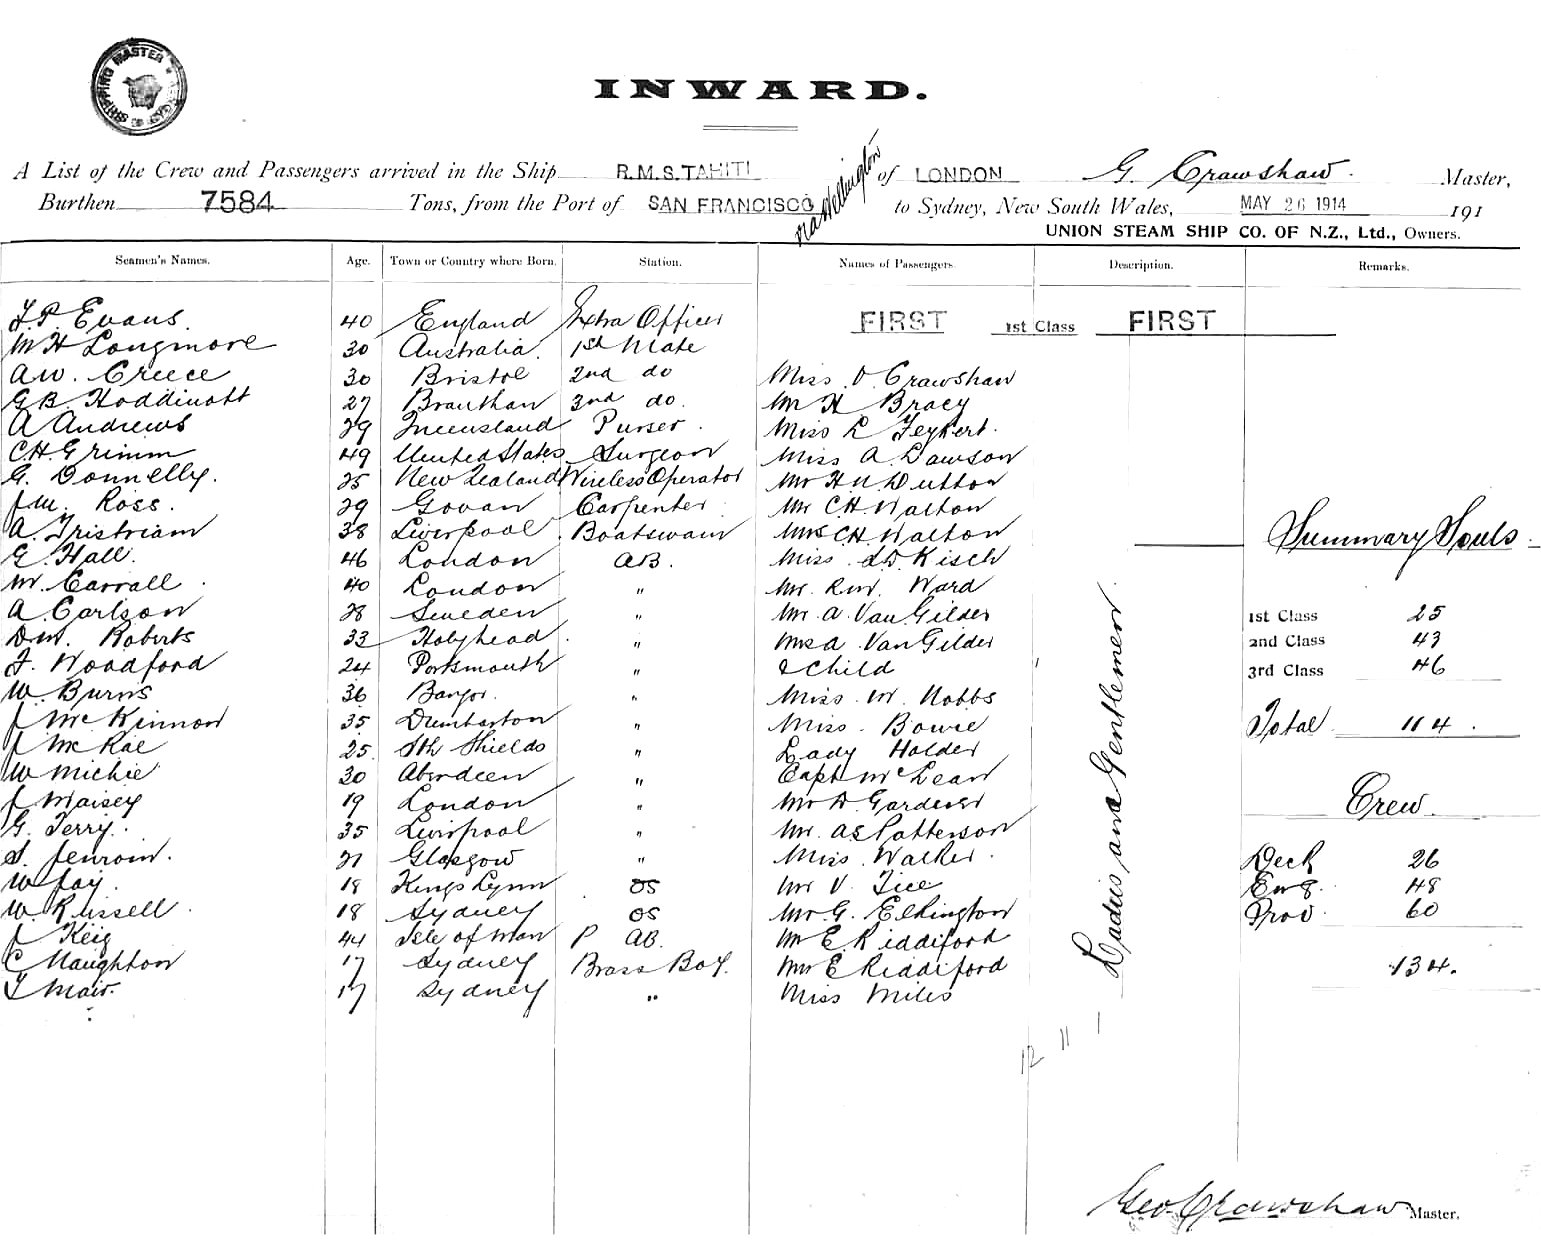 SHIPPING MASTER SYDNEY
INWARD.
A List of the Crew and Passengers arrived in the Ship R.M.S. TAHITI of LONDON G. Crawshaw. Master,
via Wellington
Burthen 7584 Tons, from the Port of SAN FRANCISCO to Sydney, New South Wales, MAY 26 1914 191
UNION STEAM SHIP CO. OF N.Z., Ltd., Owners.
Seamen's Names. Age. Town or Country where Born. Station. Names of Passengers. Description. Remarks.
FIRST 1st Class FIRST
Evans 40 England Extra Officer
Longmore 30 Australia. 1st Mate
A W. Creece 30 Bristol 2nd do Miss Crawshaw
G B. Hoddinott 27 3rd do. Mr H Bracy
A Andrews 29 Queensland Purser. Miss L
C H Grimm 49 United States Surgeon Miss A. Dawson
G. Donnelly. 25 New Zealand Wireless Operator Mr H N. Dutton
J M. Ross. 29 Govan Carpenter Mr C H Walton
A. Tristram 38 Liverpool Boatswain Mrs C H Walton
G. Hall. 46 London AB. Miss Kisch
Summary Souls
W. Carrall 40 London " Mr. R W. Ward
A Carlson 28 Sweden " Mr A. Van Gilder
1st Class 25
D M. Roberts 33 Holyhead " Mrs A Van Gilder
2nd Class 43
F. Woodford 24 Portsmouth " & Child
3rd Class 46
W. Burns 36 Bangor. " Miss M. Nobbs
J McKinnon 35 Dumbarton " Miss Bowie
Total 114.
J McRae 25 Sth Shields " Lady Holder
W Michie 30 Aberdeen " Capt McLean
J Maisey 19 London " Mr A Gardener
Crew.
G. Terry. 35 Liverpool " Mr. A S Patterson
S. 21 Glasgow " Miss Walker
Deck 26
W Jay. 18 Kings Lynn OS Mr V. Tice
Eng. 48
W. Russell 18 Sydney OS Mr G. Elkington
Prov. 60
J Keig 44 Isle of Man P AB. Mr E. Riddiford
C Naughton 17 Sydney Brass Boy. Mrs E Riddiford
134.
T Mair. 17 Sydney " Miss Miles
Ladies and Gentlemen
12 11 1
Geo Crawshaw Master.